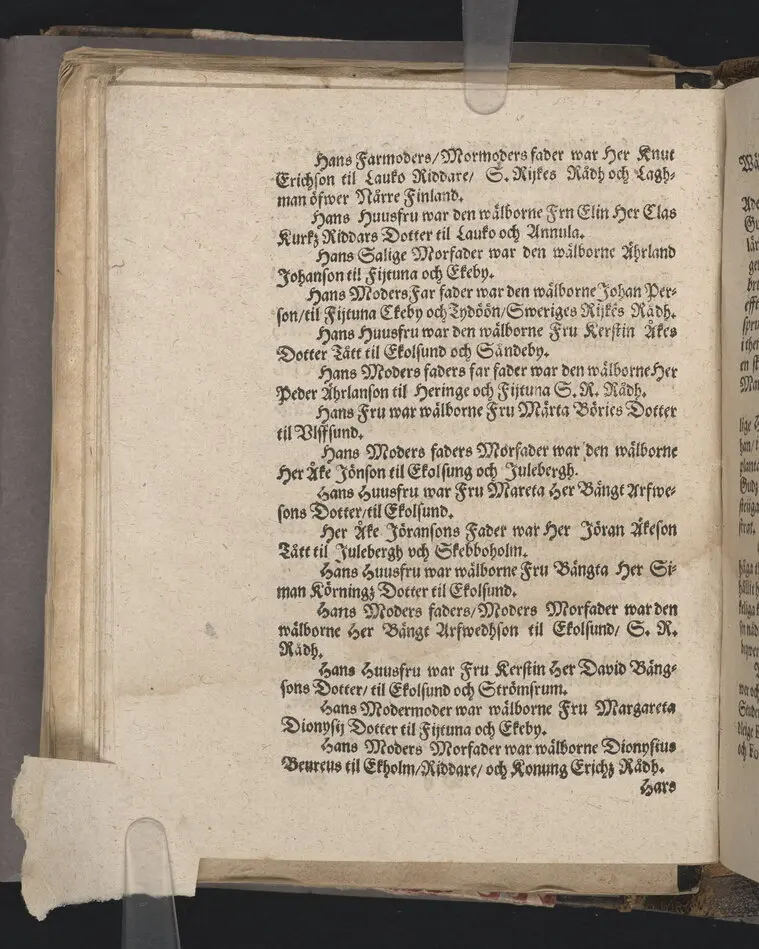 Hans Farmoders/Mormoders fader war Her Knut
Erichson til Lauko Riddare/ S. Rijkes Rådh och Lagh-
man öfwer Nårre Finland.
Hans Huusfru war den wälborne Frn Elin Her Clas
Kurkz Riddars Dotter til Lauko och Annula.
Hans Salige Morfader war den wälborne Ährland
Johanson til Fijtuna och Ekeby.
Hans Moders Far fader war den wälborne Johan Per-
son/til Fijtuna Ekeby och Tydöön/Sweriges Rijkes Rådh.
Hans Huusfru war den wälborne Fru Kerstin Åkes
Dotter Tått til Ekolsund och Såndeby.
Hans Moders faders far fader war den wälborne Her
Peder Ährlanson til Heringe och Fijtuna S. R. Rådh.
Hans Fru war wälborne Fru Märta Böries Dotter
til Vlffsund.
Hans Moders faders Morfader war den wälborne
Her Åke Jönson til Ekolsung och Julebergh.
Hans Huusfru war Fru Mareta Her Bängt Arfwe-
sons Dotter/til Ekolsund.
Her Åke Jöransons Fader war Her Jöran Åkeson
Tått til Julebergh och Skebboholm.
Hans Huusfru war wälborne Fru Bängta Her Si-
man Körningz Dotter til Ekolsund.
Hans Moders faders/Moders Morfader war den
wälborne Her Bängt Arfwedhson til Ekolsund/ S. R.
Rådh.
Hans Huusfru war Fru Kerstin Her David Bäng-
sons Dotter/ til Ekolsund och Strömsrum.
Hans Modermoder war wälborne Fru Margareta
Dionysij Dotter til Fijtuna och Ekeby.
Hans Moders Morfader war wälborne Dionysius
Beureus til Ekholm/Riddare/ och Konung Erichz Rådh.
Hans